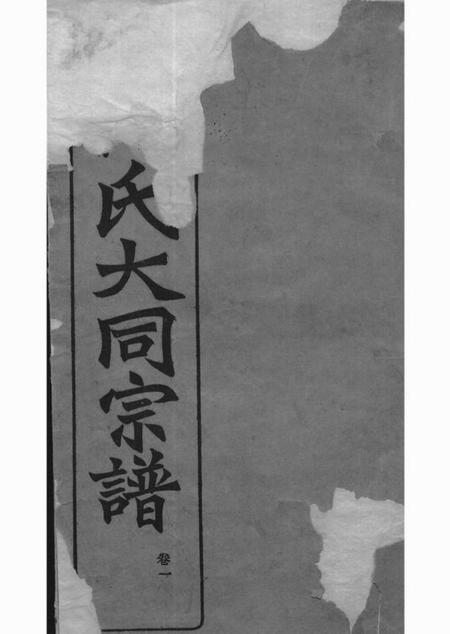 氏大同宗譜
卷一